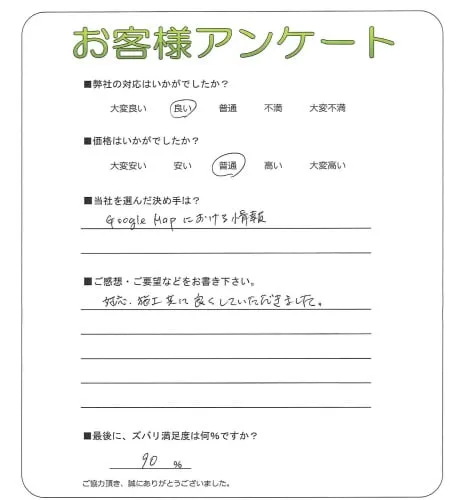 お客様アンケート
■弊社の対応はいかがでしたか?
大変良い 良い 普通 不満 大変不満
■価格はいかがでしたか?
大変安い 安い 普通 高い 大変高い
■当社を選んだ決め手は?
Google Mapにおける情報
■ご感想・ご要望などをお書き下さい。
対応、施工共に良くしていただきました。
■最後に、ズバリ満足度は何%ですか?
90 %
ご協力頂き、誠にありがとうございました。